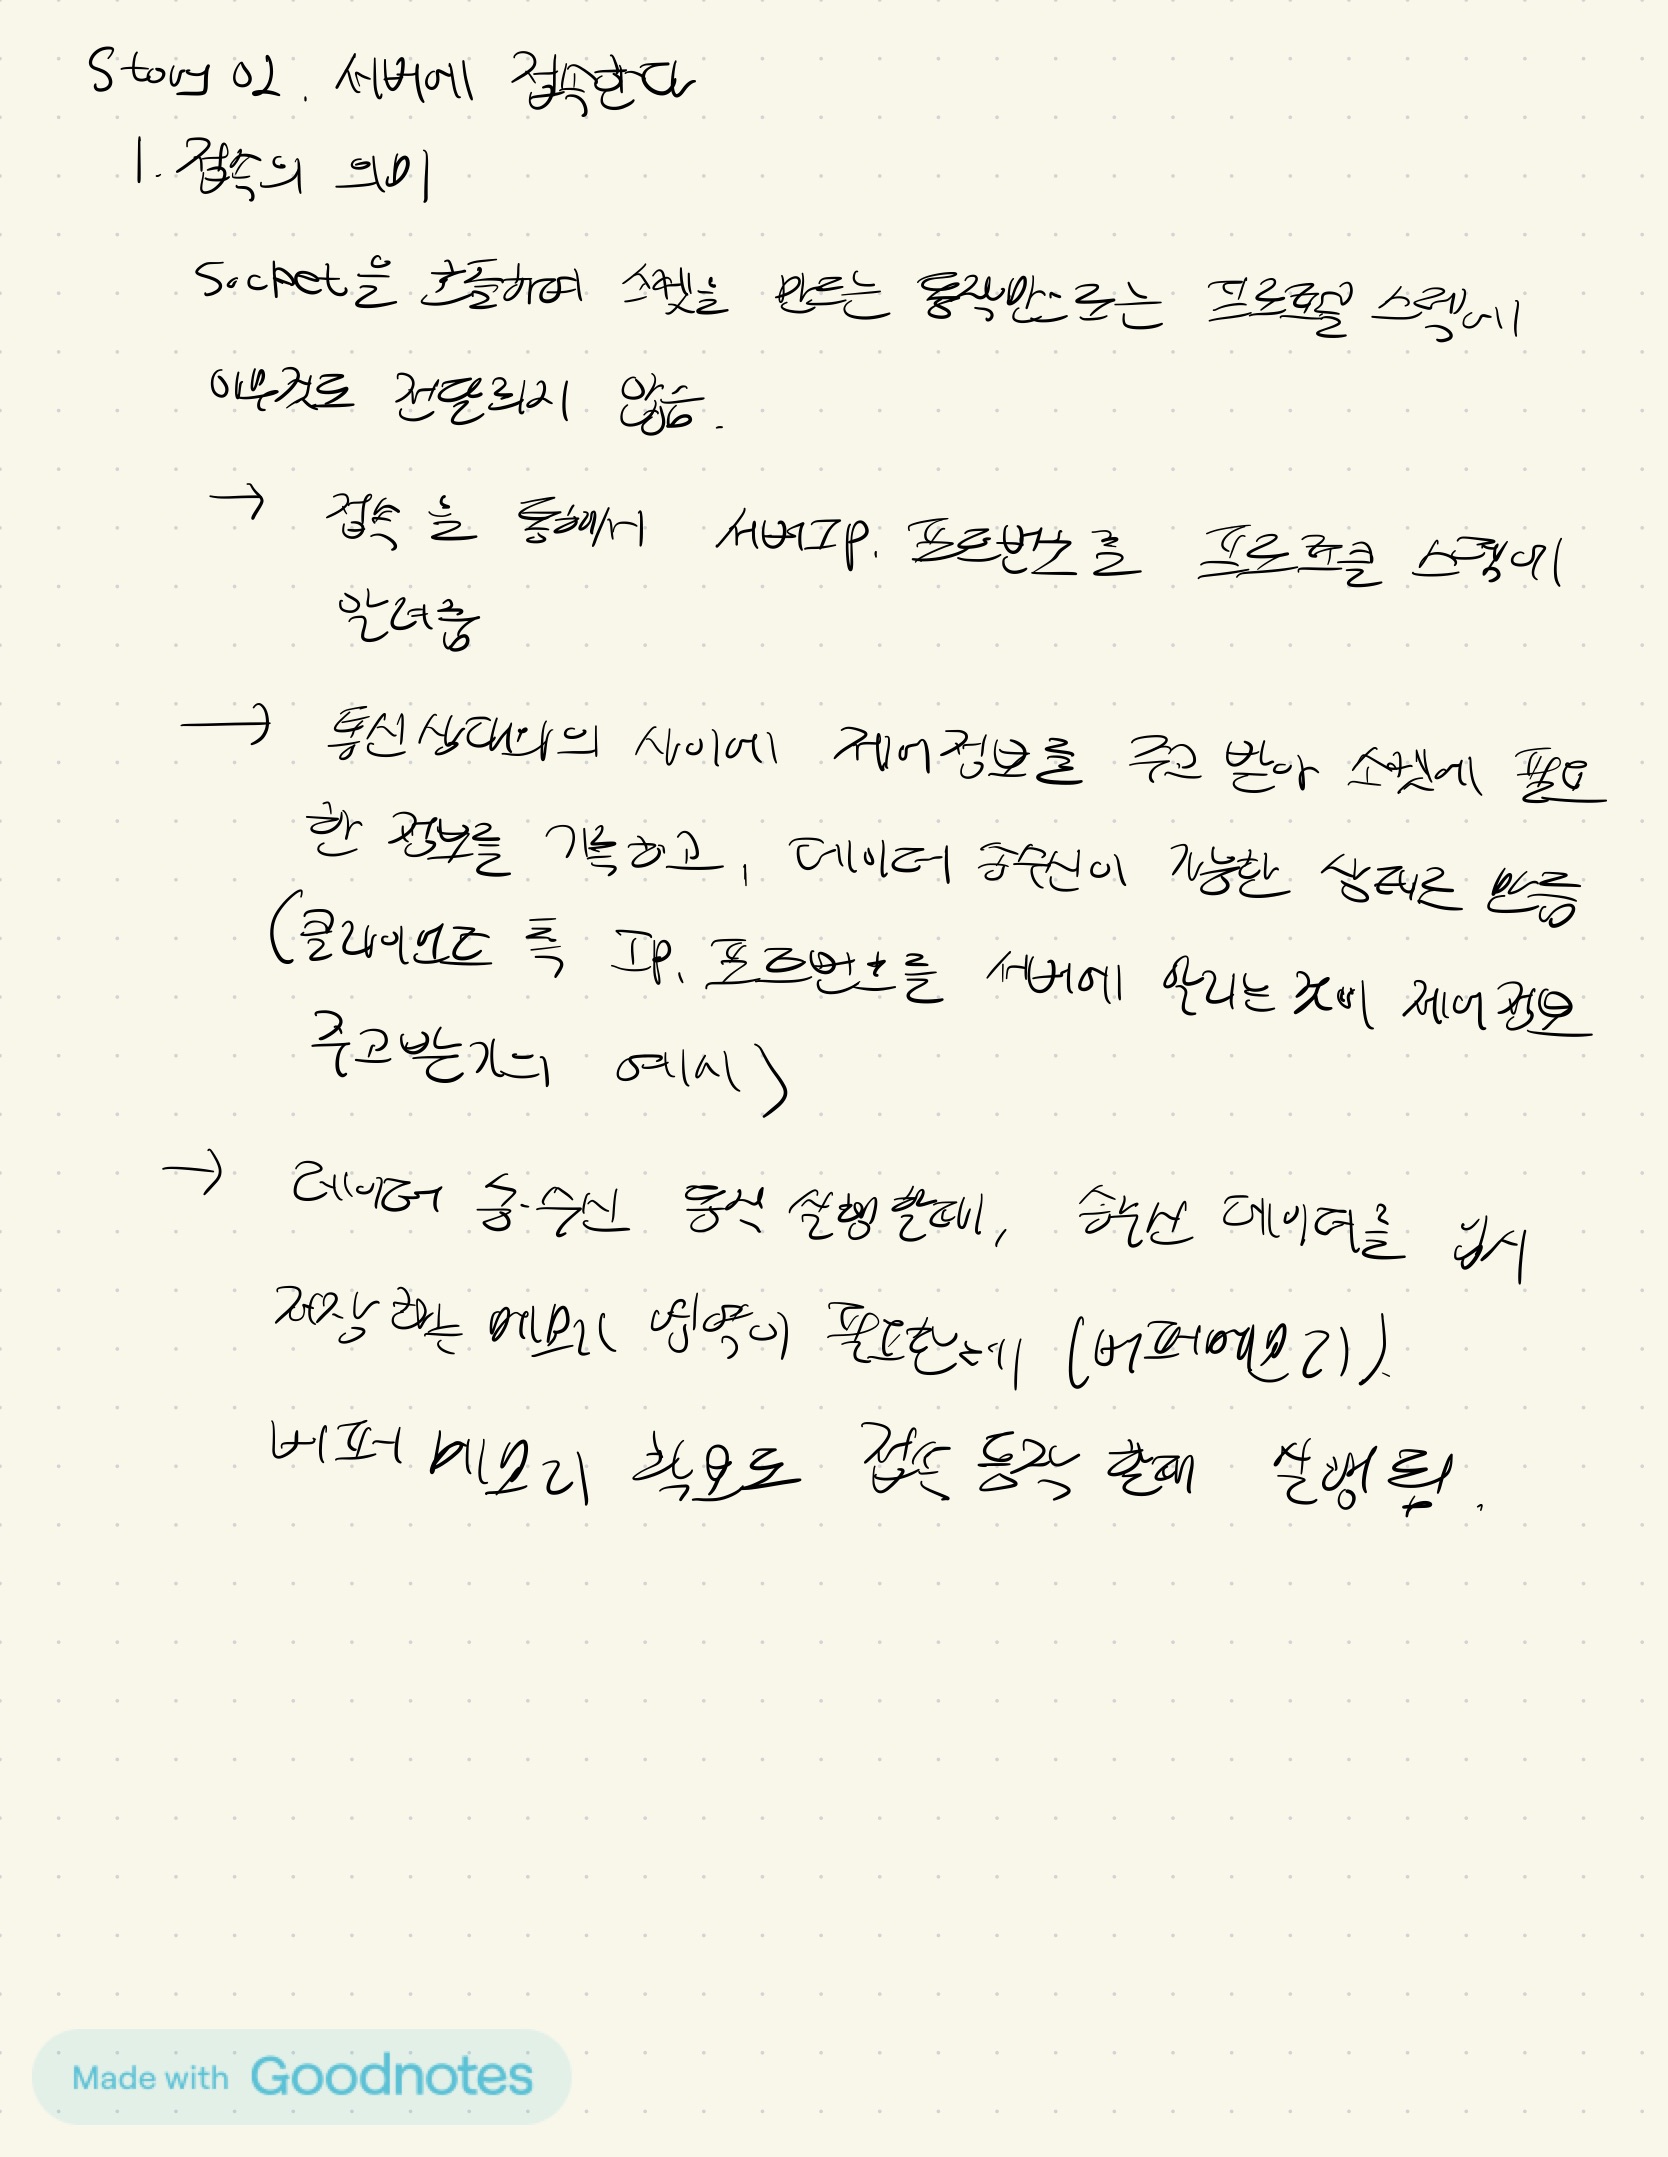 Story 02. 서버에 접속한다
1. 접속의 의미
Socket을 호출하여 소켓을 만드는 동작만으로는 프로토콜 스택에
아무것도 전달되지 않음.
→ 접속을 통해서 서버IP, 포트번호를 프로토콜 스택에
알려줌
→ 통신상대와의 사이에 제어정보를 주고 받아 소켓에 필요
한 정보를 기록하고, 데이터 송수신이 가능한 상태로 만듬
(클라이언트 측 IP, 포트번호를 서버에 알리는 것이 제어정보
주고받기의 예시)
→ 데이터 송·수신 동작 실행할때, 송수신 데이터를 임시
저장하는 메모리 영역이 필요한데 (버퍼메모리).
버퍼 메모리 확보도 접속 동작 할때 실행됨.
Made with Goodnotes